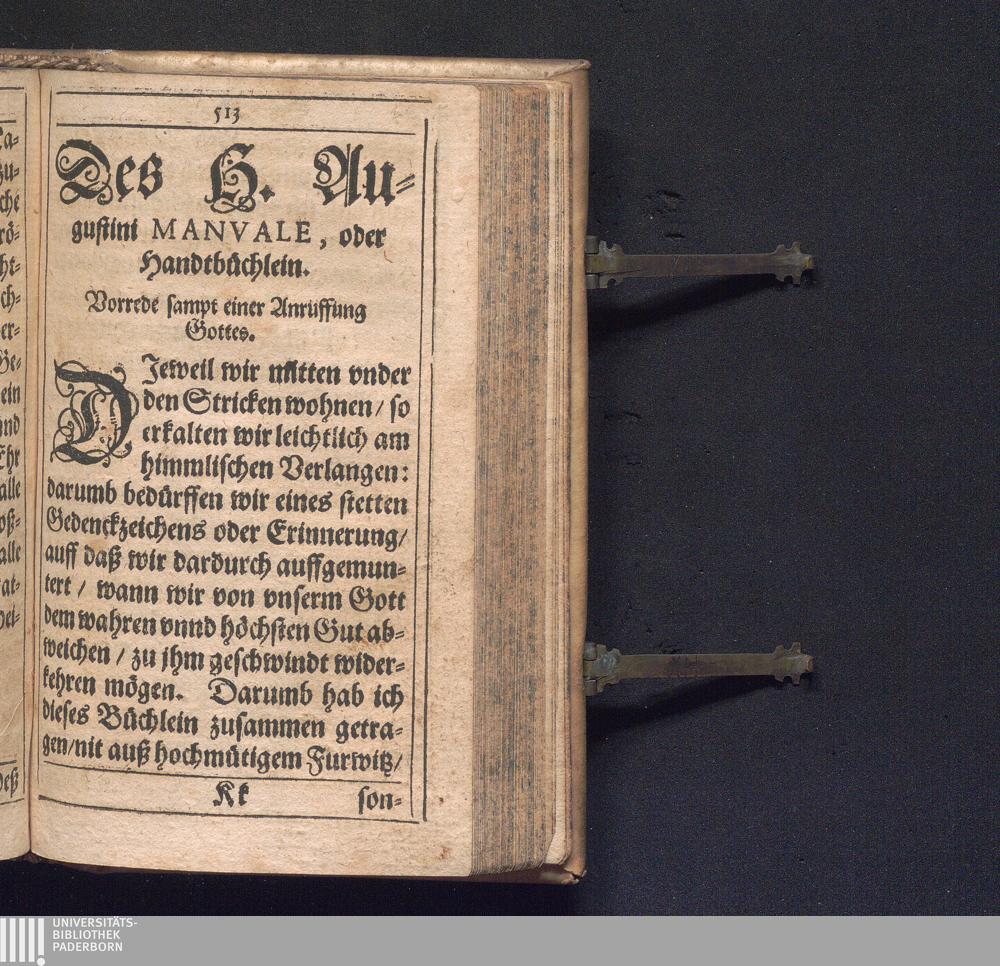 513
Des H. Au-
gustini MANVALE, oder
Handtbüchlein.
Vorrede sampt einer Anrüffung
Gottes.
DJeweil wir mitten vnder
den Stricken wohnen / so
erkalten wir leichtlich am
himmlischen Verlangen:
darumb bedürffen wir eines stetten
Gedenckzeichens oder Erinnerung/
auff daß wir dardurch auffgemun-
tert / wann wir von vnserm Gott
dem wahren vnnd höchsten Gut ab-
weichen / zu jhm geschwindt wider-
kehren mögen. Darumb hab ich
dieses Büchlein zusammen getra-
gen/nit auß hochmütigem Furwitz/
Kk son-
UNIVERSITÄTS-
BIBLIOTHEK
PADERBORN